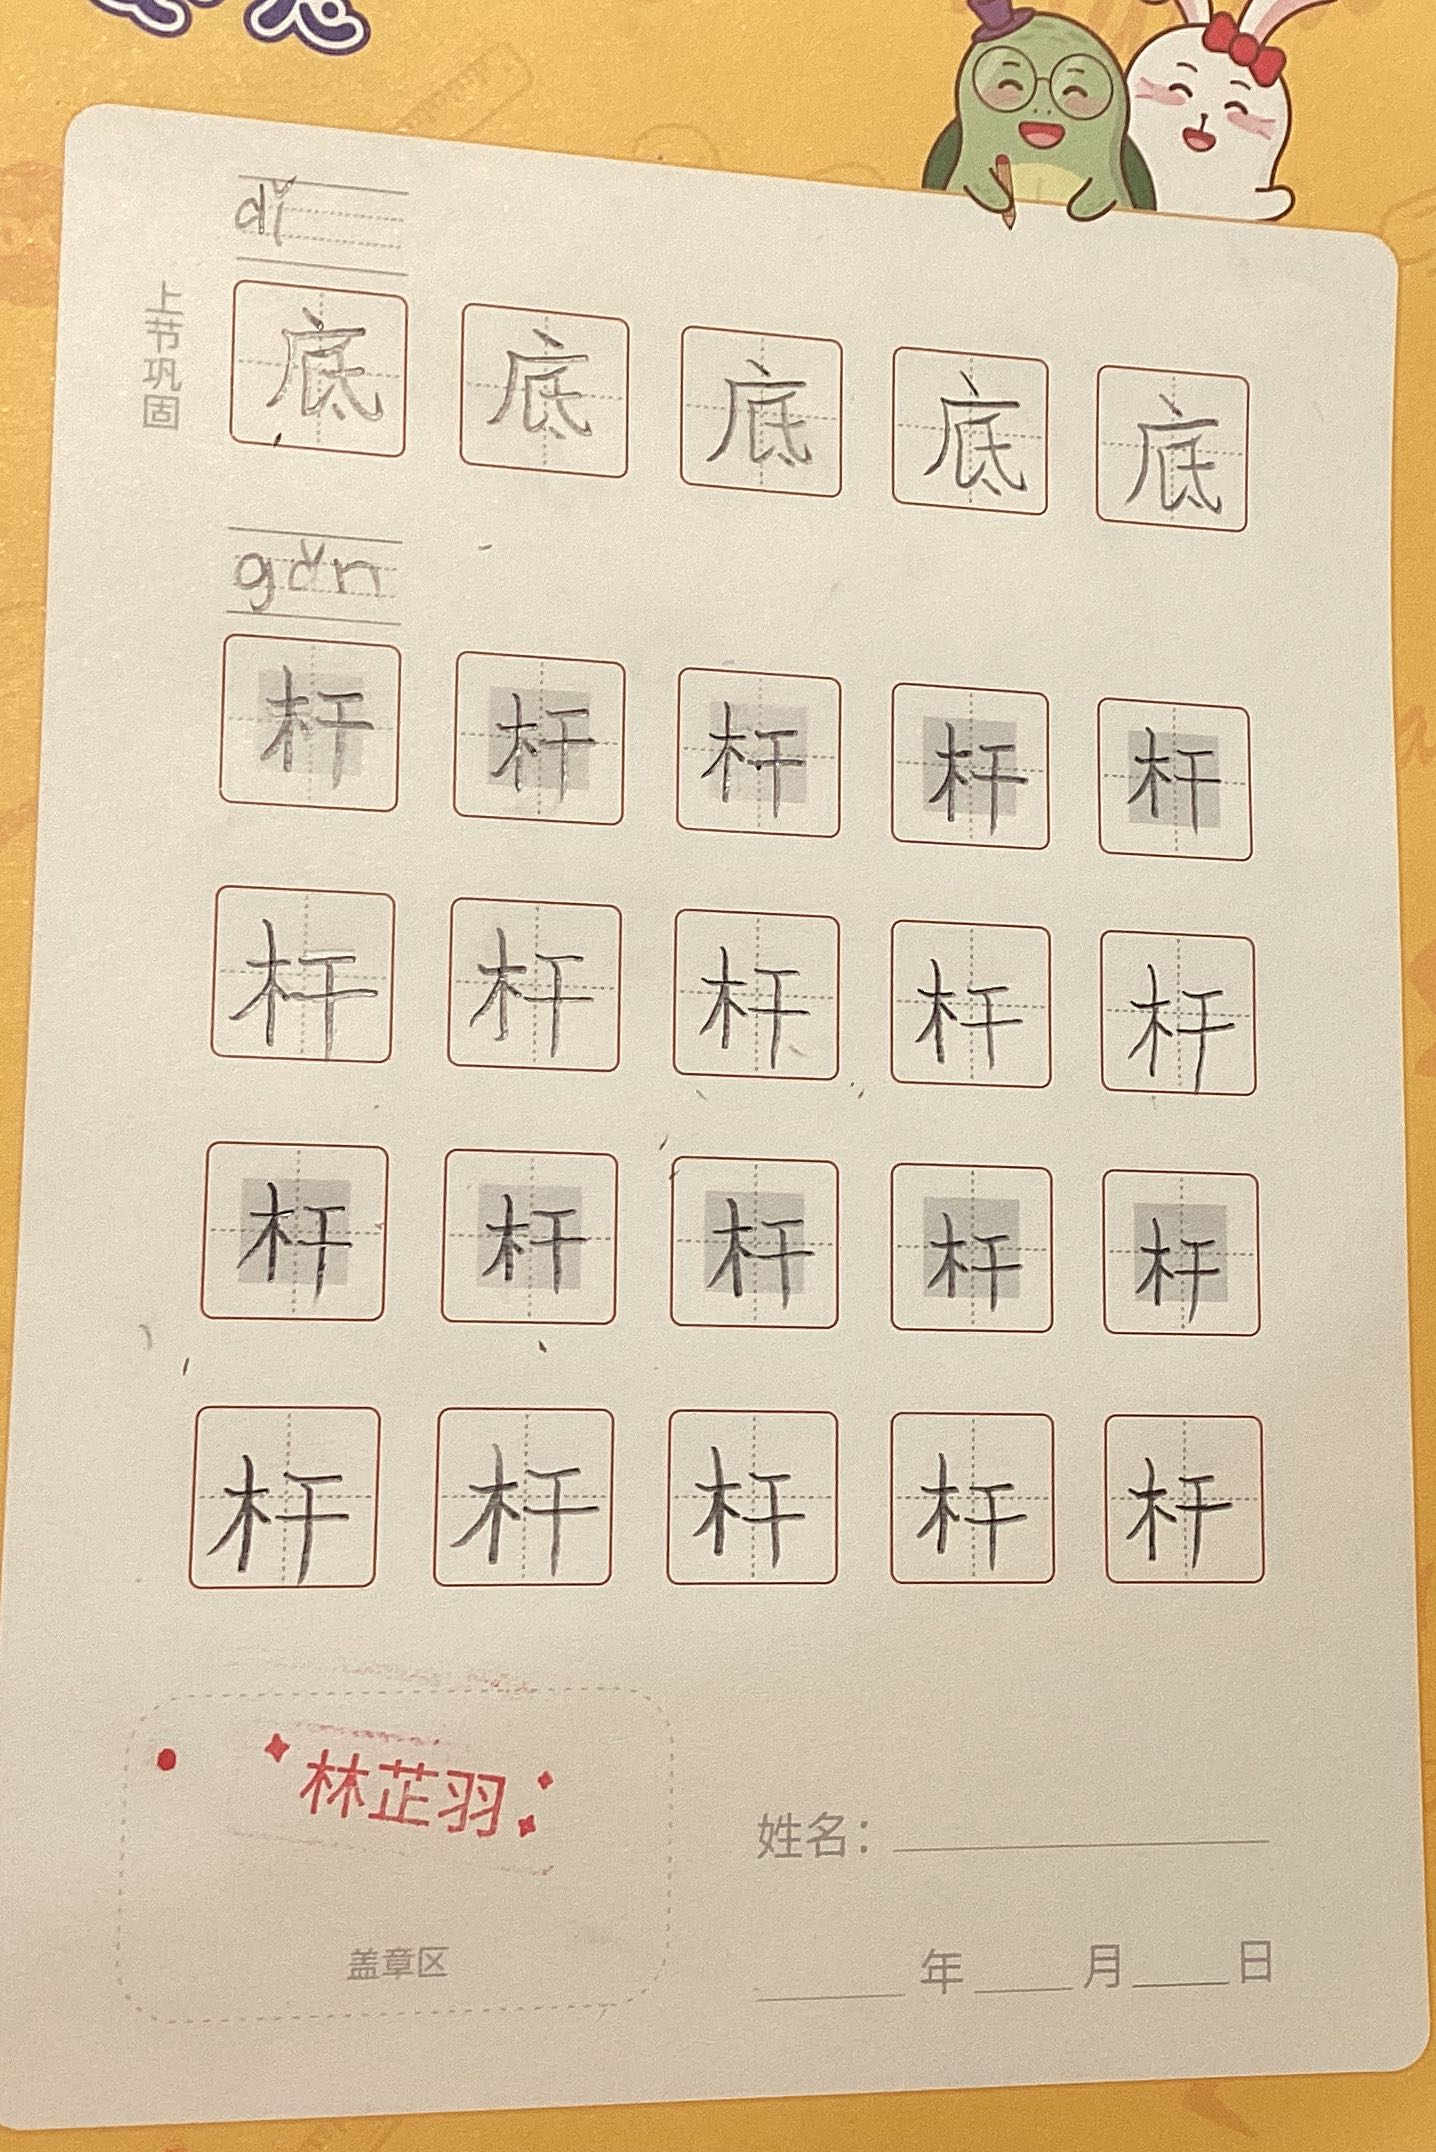 dǐ
上节巩固
底 底 底 底 底
gǎn
杆 杆 杆 杆 杆
杆 杆 杆 杆 杆
杆 杆 杆 杆 杆
杆 杆 杆 杆 杆
林芷羽
姓名：
盖章区
年 月 日